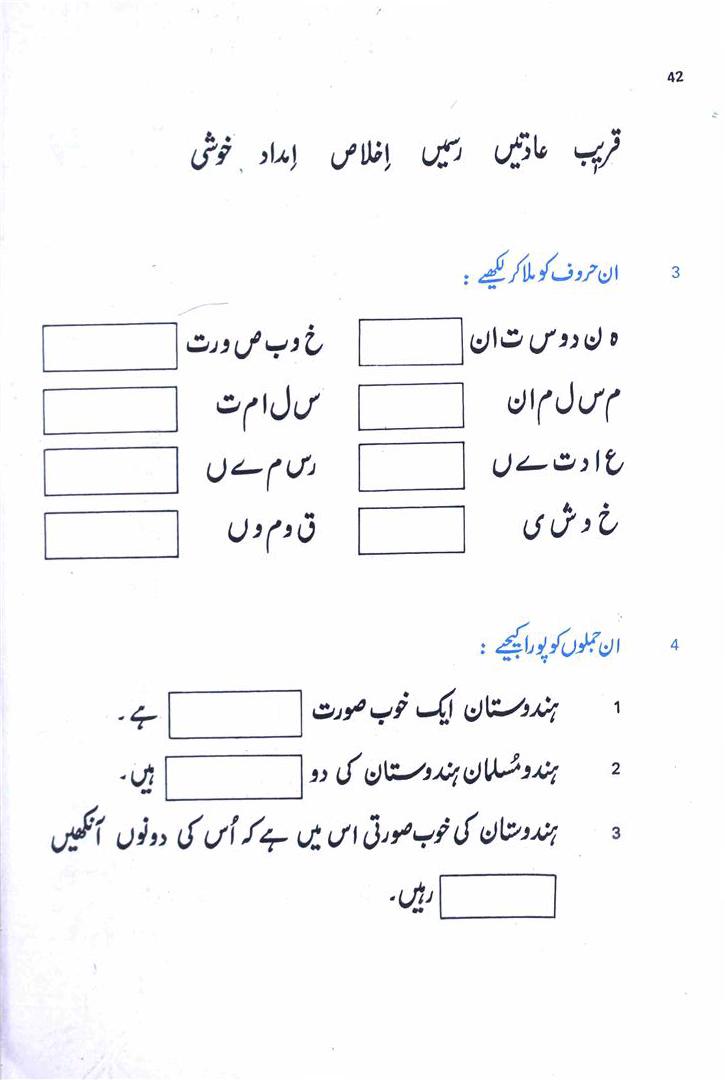 42
قریب عادتیں رسمیں اِخلاص اِمداد خوشی
3 ان حروف کو ملا کر لکھیے :
ہ ن د و س ت ا ن خ و ب ص و ر ت
م س ل م ا ن س ل ا م ت
ع ا د ت ے ں ر س م ے ں
خ و ش ی ق و م و ں
4 ان جملوں کو پورا کیجیے :
1 ہندوستان ایک خوب صورت ہے۔
2 ہندو مُسلمان ہندوستان کی دو ہیں۔
3 ہندوستان کی خوب صورتی اس میں ہے کہ اُس کی دونوں آنکھیں
رہیں۔